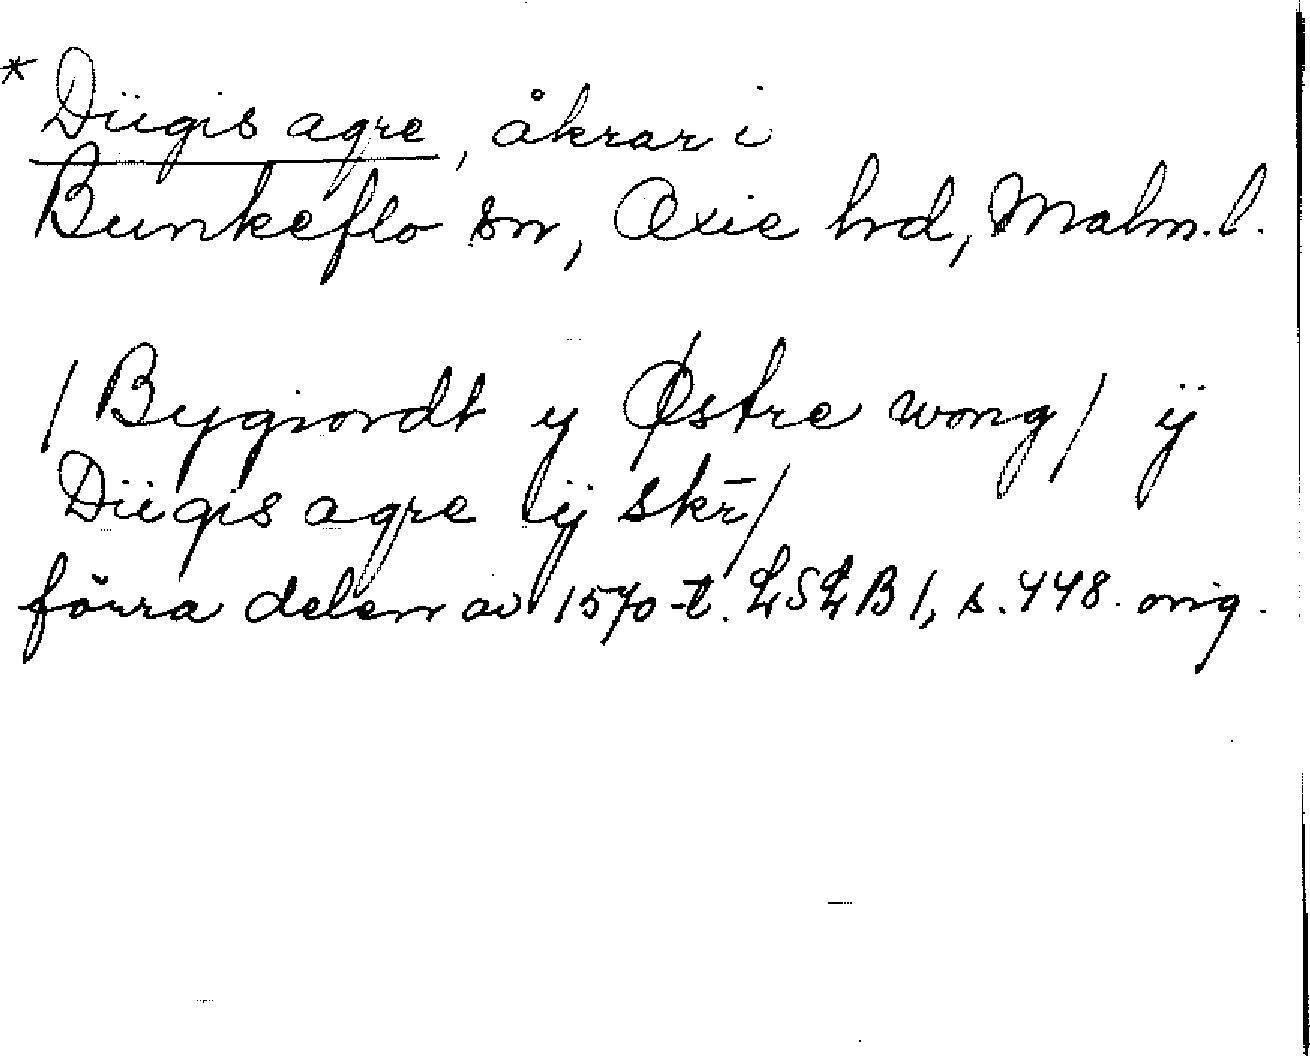 * Diigis agre, åkrar i
Bunkeflo sn, Oxie hd, Malm. l.
/ Bygiordt y Østre wong / ij
Diigis agre iij skr̄ /
förra delen av 1570-t. LSLB 1, s. 448. orig.